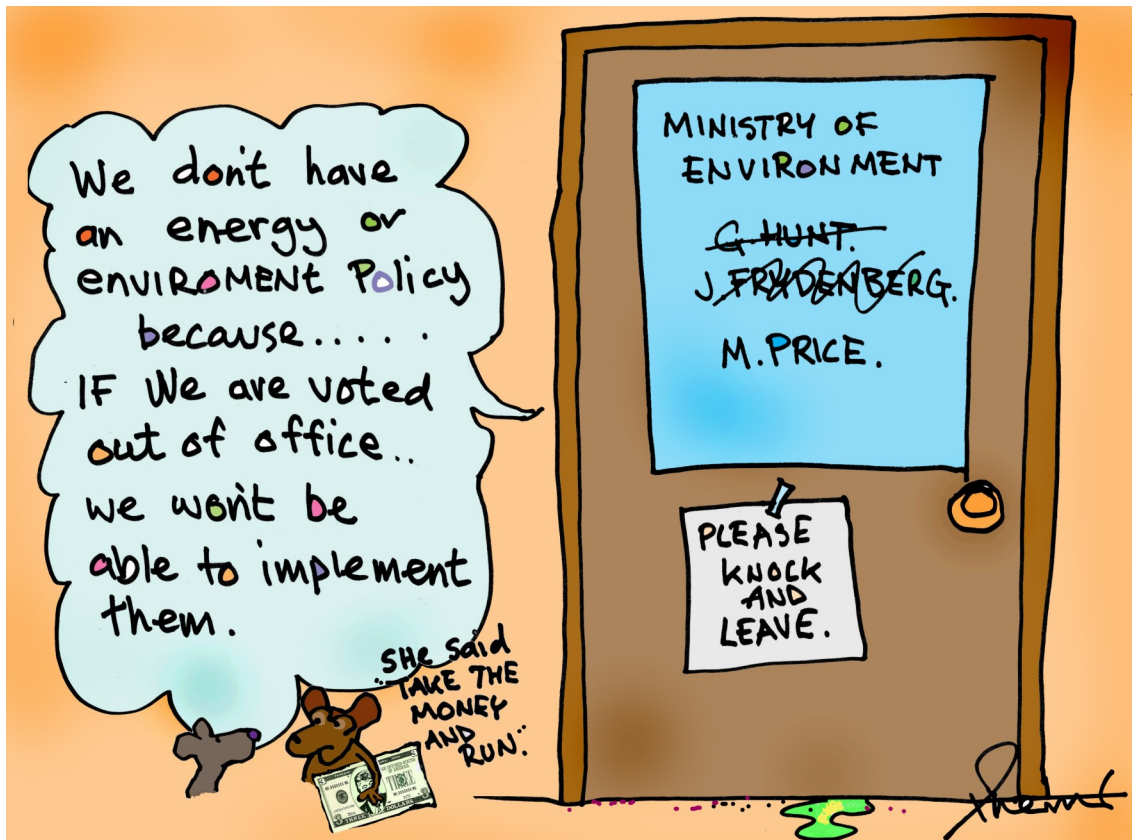 We don't have
an energy or
enviroMENT Policy
because.....
IF We are voted
out of office..
we won't be
able to implement
them.
SHe said
"TAKE THE
MONEY
AND
RUN."
MINISTRY OF
ENVIRONMENT
G HUNT.
J FRYDENBERG.
M. PRICE.
PLEASE
KNOCK
AND
LEAVE.